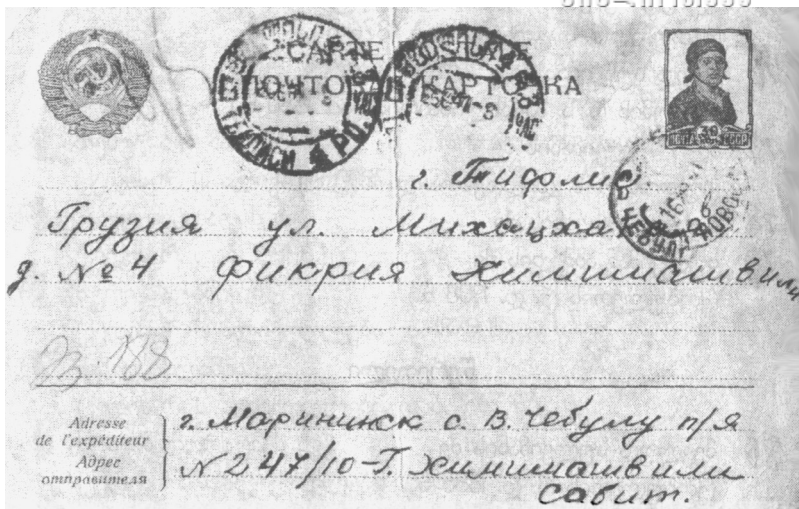 CARTE POSTALE
ПОЧТОВАЯ КАРТОЧКА
г. Тифлис.
Грузия ул.
д. № 4 Фикрия Химшиашвили
Adresse
de l'expéditeur
Адрес
отправителя
г. Марининск с. В. Чебулу п/я
N 247/10-Г. Химшиашвили
Сабит.